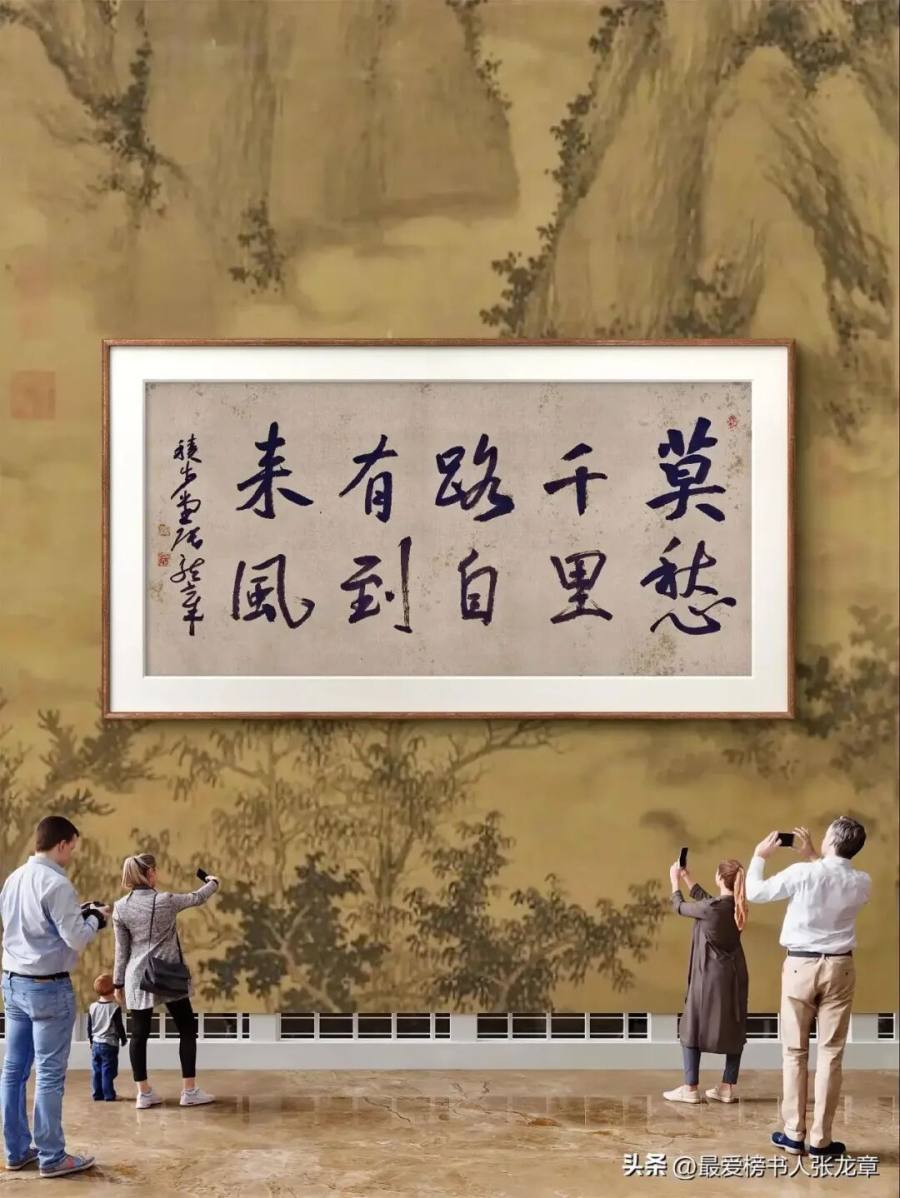 莫愁
千里
路自
有到
来風
张龙章
头条 @最爱榜书人张龙章